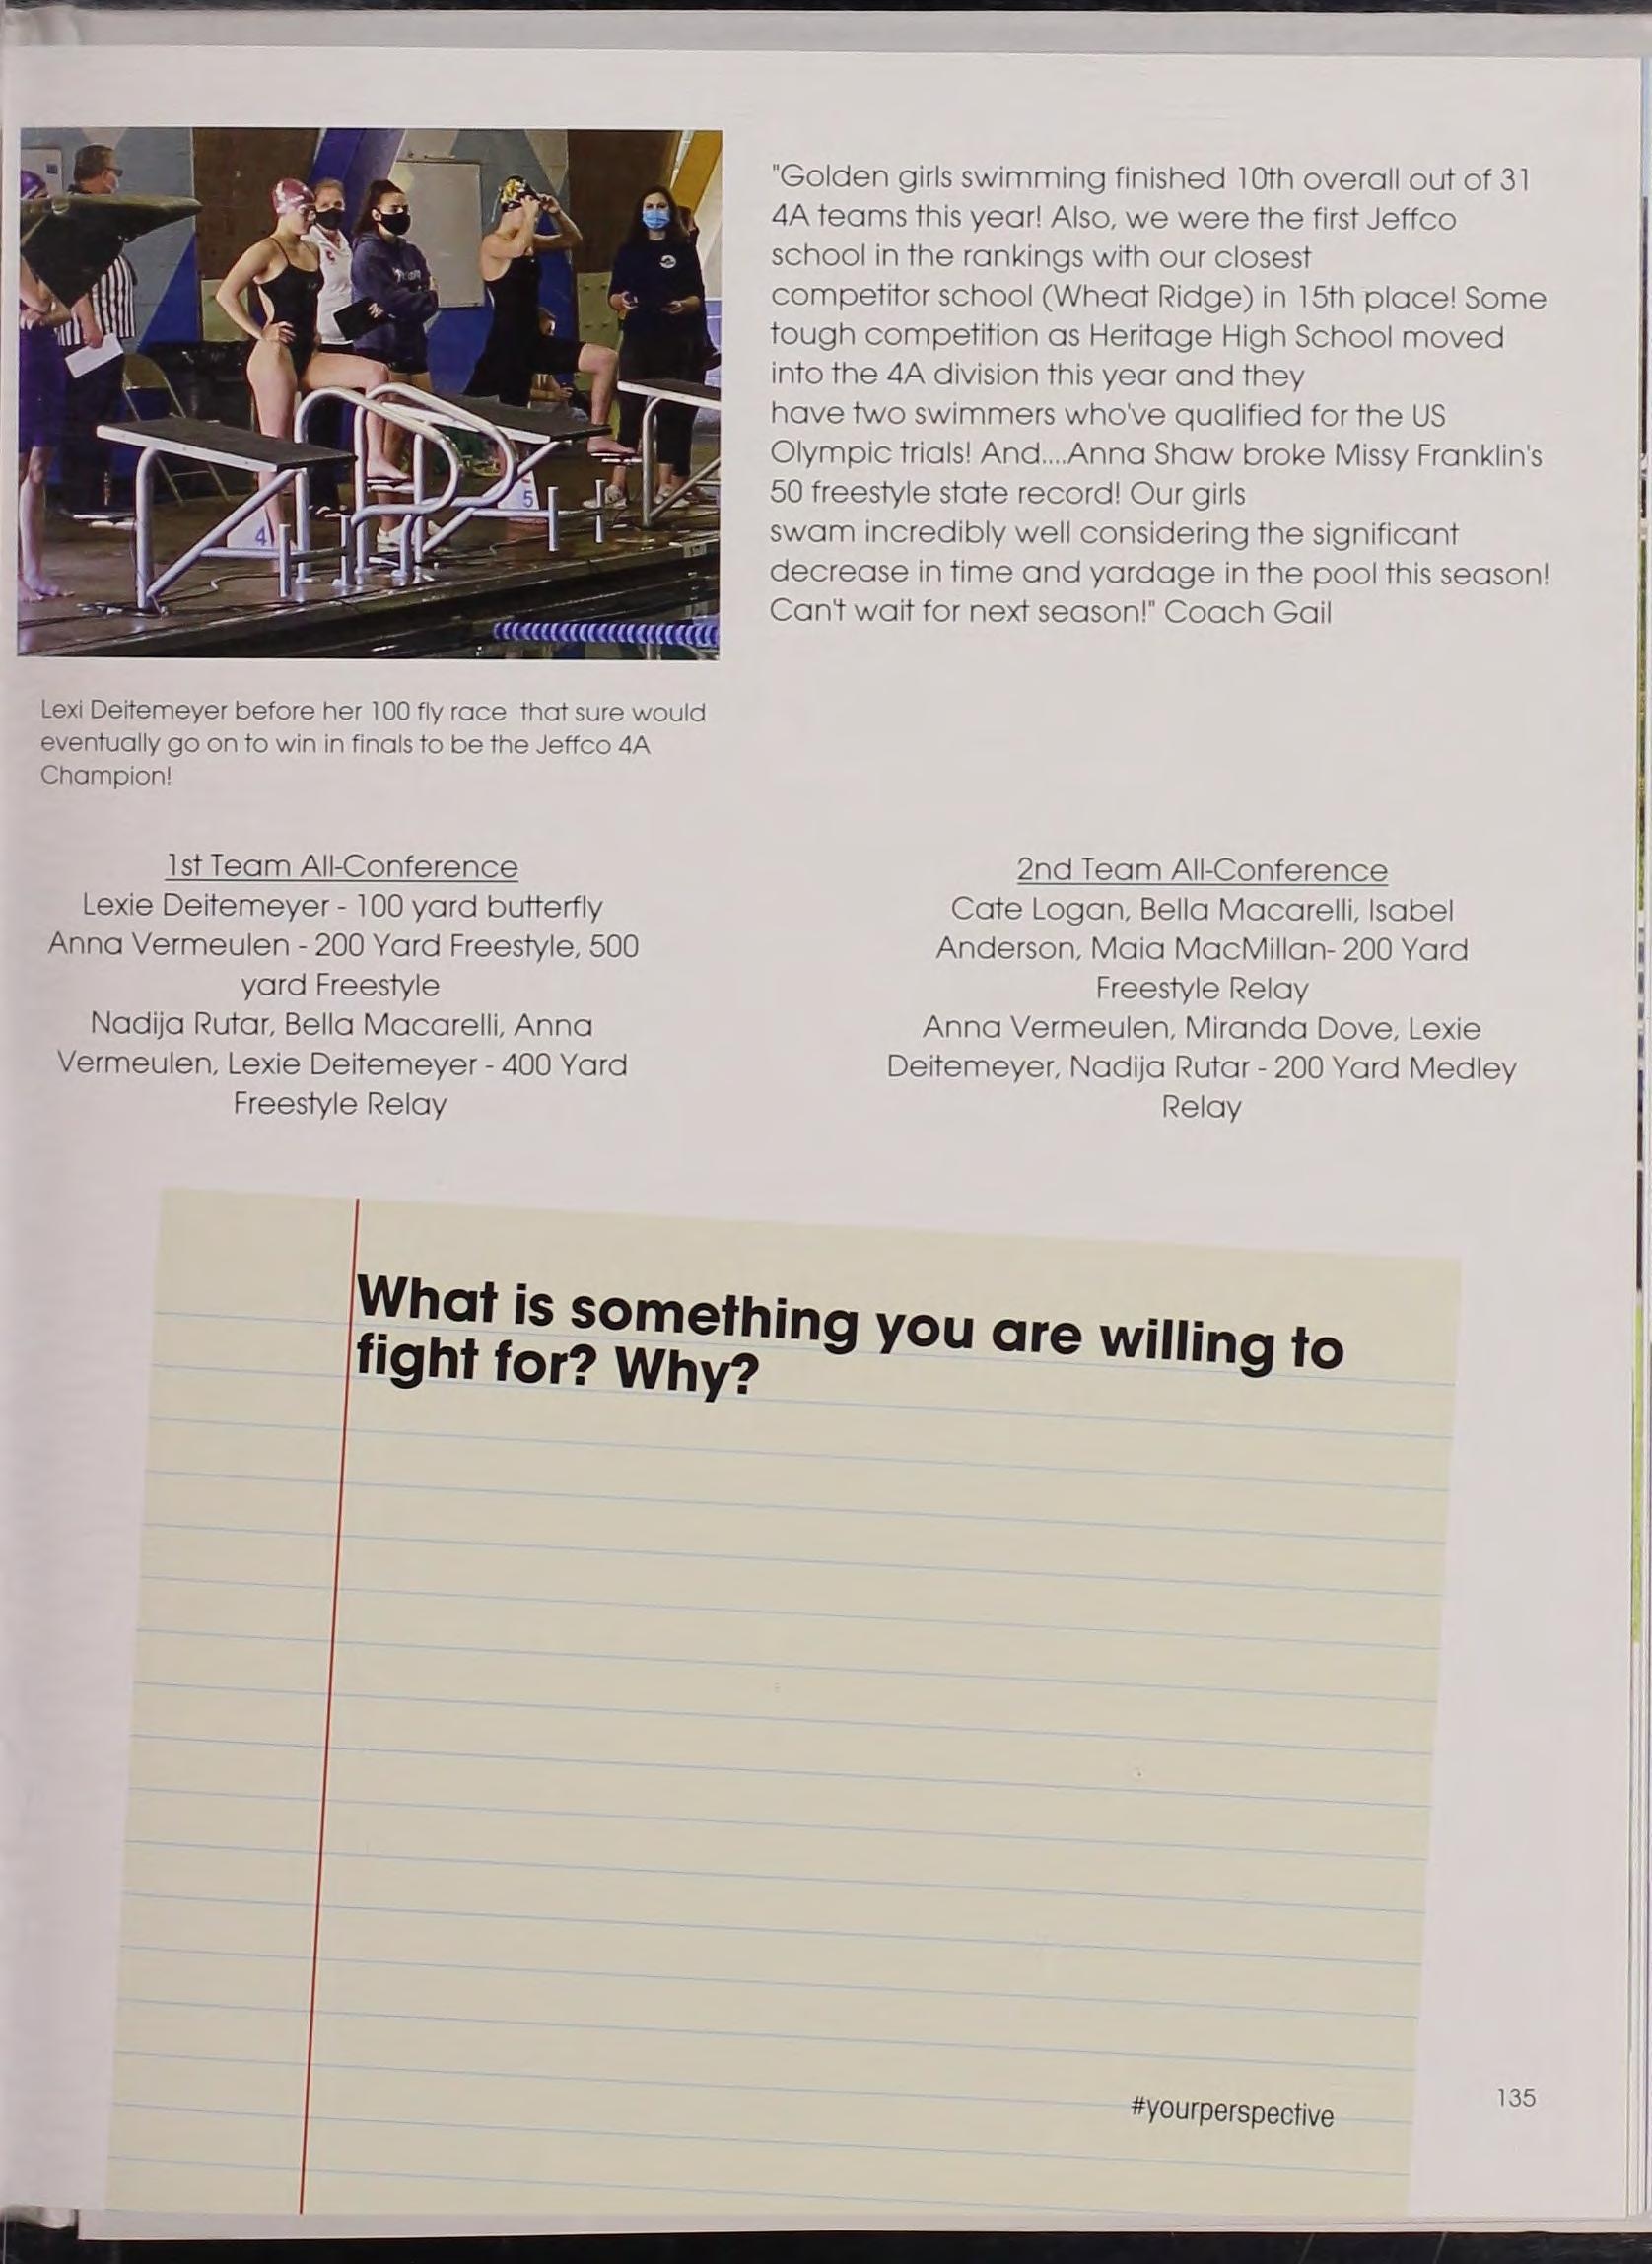 4
5
"Golden girls swimming finished 10th overall out of 31
4A teams this year! Also, we were the first Jeffco
school in the rankings with our closest
competitor school (Wheat Ridge) in 15th place! Some
tough competition as Heritage High School moved
into the 4A division this year and they
have two swimmers who've qualified for the US
Olympic trials! And....Anna Shaw broke Missy Franklin's
50 freestyle state record! Our girls
swam incredibly well considering the significant
decrease in time and yardage in the pool this season!
Can't wait for next season!" Coach Gail
Lexi Deitemeyer before her 100 fly race that sure would
eventually go on to win in finals to be the Jeffco 4A
Champion!
1st Team All-Conference
Lexie Deitemeyer - 100 yard butterfly
Anna Vermeulen - 200 Yard Freestyle, 500
yard Freestyle
Nadija Rutar, Bella Macarelli, Anna
Vermeulen, Lexie Deitemeyer - 400 Yard
Freestyle Relay
2nd Team All-Conference
Cate Logan, Bella Macarelli, Isabel
Anderson, Maia MacMillan- 200 Yard
Freestyle Relay
Anna Vermeulen, Miranda Dove, Lexie
Deitemeyer, Nadija Rutar - 200 Yard Medley
Relay
What is something you are willing to
fight for? Why?
#yourperspective
135